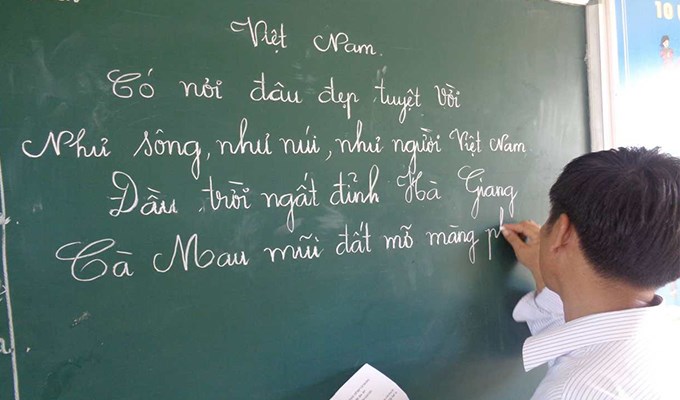 Việt Nam.
Có nơi đâu đẹp tuyệt vời
Như sông, như núi, như người Việt Nam
Đầu trời ngất đỉnh Hà Giang
Cà Mau mũi đất mỡ màng ph
10